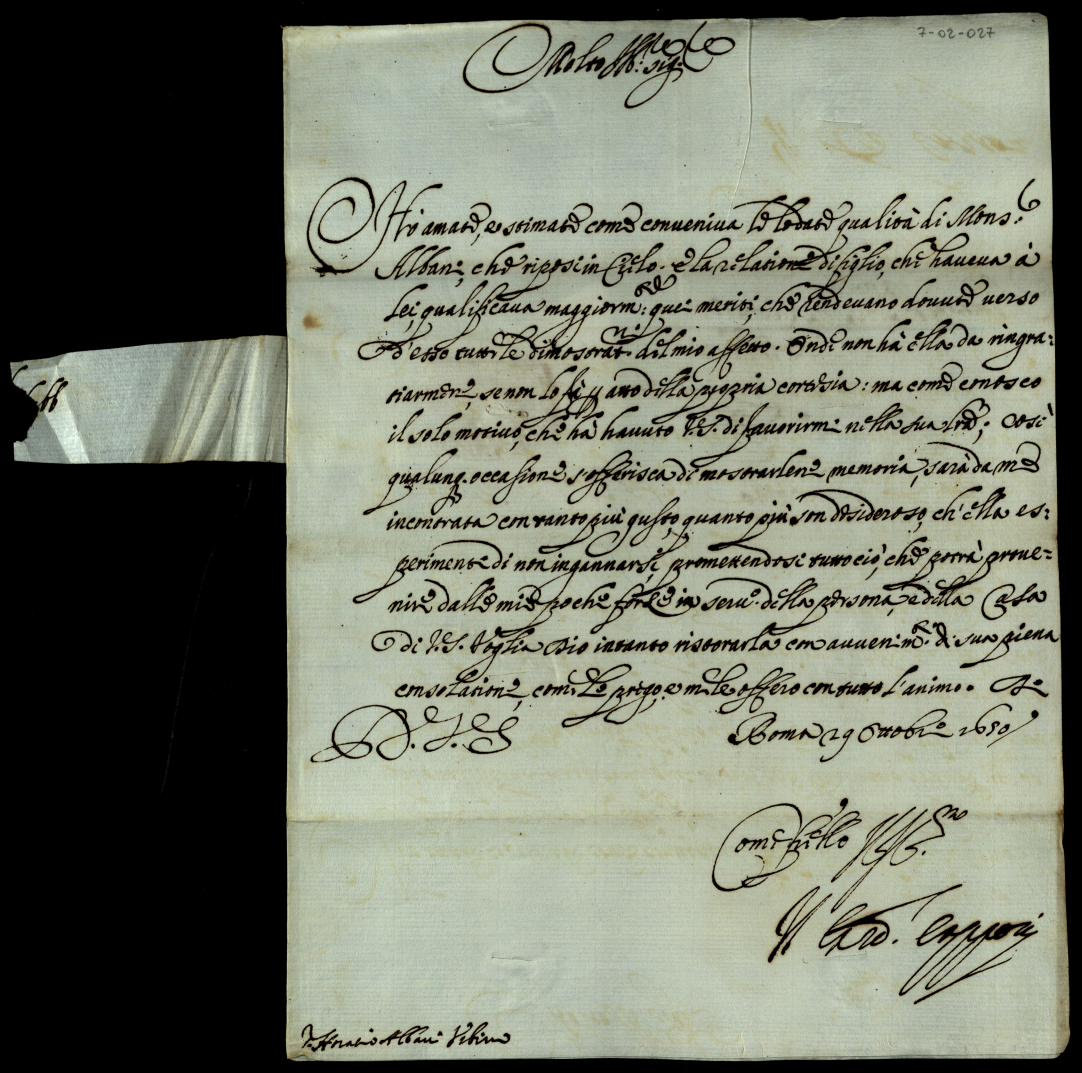 7-02-027
Molto Ill.re sig.re
Hò amate, e stimate come conveniva le lodate qualità di Mons.r
Albani, che riposi in Cielo. e la relatione di figlio, che haveva à
lei qualificava maggiorm.te quei meriti, che rendevano dovute verso
d'esso tutte le dimostrat.ni del mio affetto. Onde non hà ella da ringra:
tiarmene, se non lo fà p atto della propria cortesia: ma come conosco
il solo motivo, che hà havuto V.S. di favorirmi nella sua l'ra; così
qualunq. occasione s'offerisca di mostrarlene memoria, sarà da me
incontrata con tanto più gusto, quanto più son desideroso, ch'ella es:
perimente di non ingannarsi, promettendosi tutto ciò, che potrà prove:
nire dalle mie poche forze in serv.o della persona, e della Casa
di V.S. Voglia Dio intanto ristorarla con avvenim.ti di sua piena
consolatione, come lo prego, e me le offero con tutto l'animo. Di
D. V. S.
Roma 29 Ottobre 1650
Come f'rello
Il Card. Capponi
S. Horatio Albani Urbino